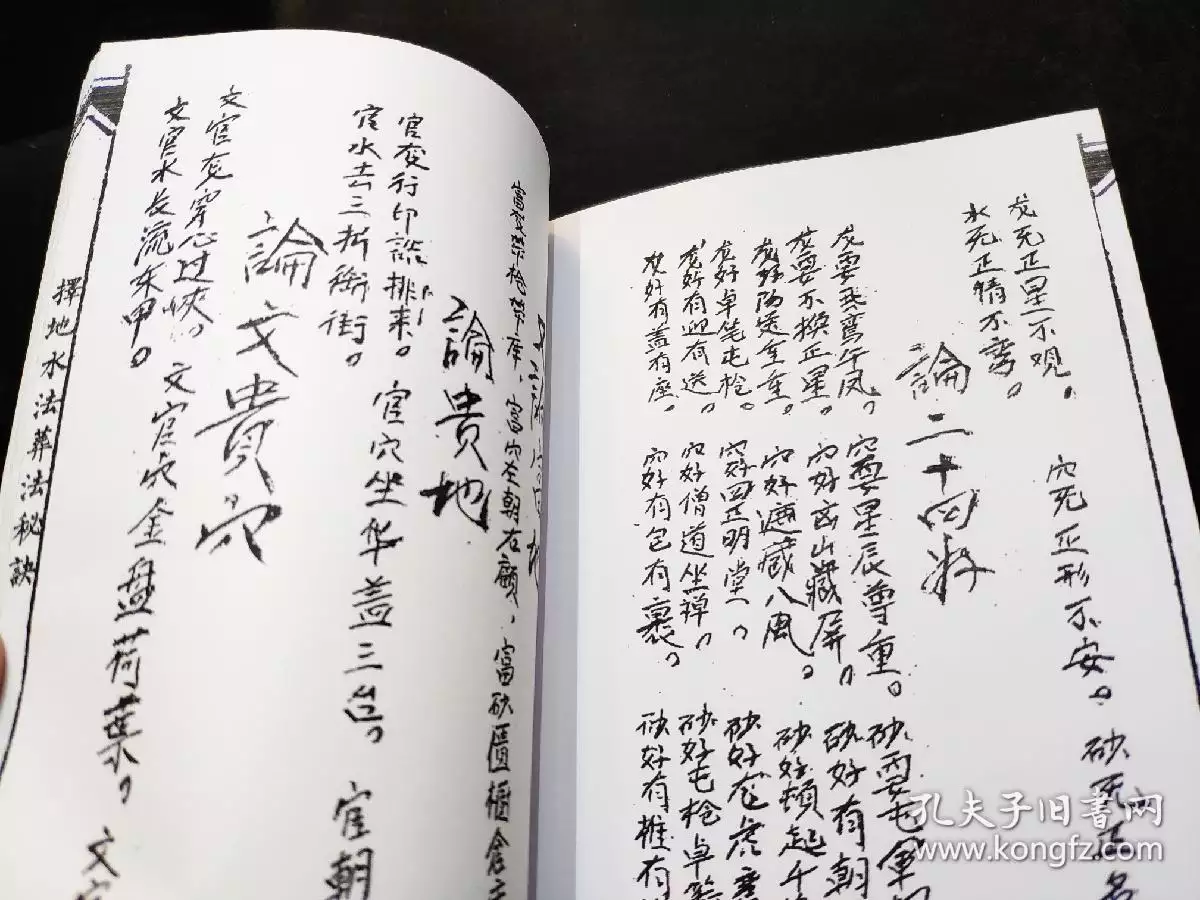 龙死正星不观。 穴死正形不安。 砂死正名
水死正情不弯。
論二十四好
龙要飞鸾午凤。 穴要星辰尊重。 砂要屯軍
龙要不换正星。 穴好出山藏屏。 砂好有朝
穴好遮藏八風 砂好頓起千
龙好卓笔屯枪。 穴好四正明堂。 砂好龙虎
龙好有迎有送。 穴好僧道坐禅。 砂好屯枪卓
龙好有盖有座。 穴好有包有裹。 砂好有推有
富穴左朝右顧, 富砂匱櫃倉
論貴地
官龙行印誥排来。 官穴坐华盖三台。 官朝
官水去三折街街。
論文貴穴
文官龙穿心过峡。 文官穴金盘荷葉。 文
文官水长流朱甲。
擇地水法葬法秘訣
孔夫子旧書网
www.kongfz.com